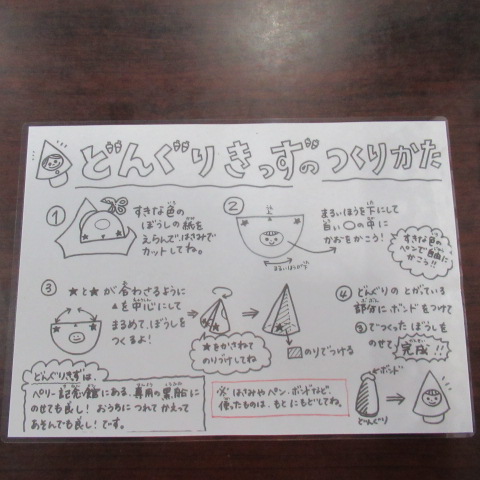 どんぐりきっずのつくりかた
①
すきな色の
ぼうしの紙を
えらんで、はさみで
カットしてね。
②
まるいほうを下にして
白い○の中に
かおをかこう!
まるいほうが下
すきな色の
ペンで自由に
かこう!!
③
★と★が合わさるように
▲を中心にして
まるめて、ぼうしを
つくるよ!
★をかさねて
のりづけしてね
のりでつける
④
どんぐりのとがっている
部分にボンドをつけて
③でつくったぼうしを
のせて
完成!!
ボンド
どんぐり
どんぐりきっずは、
ペリー記念館にある、専用の黒船に
のせても良し!おうちにつれてかえって
あそんでも良し!です。
※はさみやペン・ボンドなど、
使ったものは、もとにもどしてね。